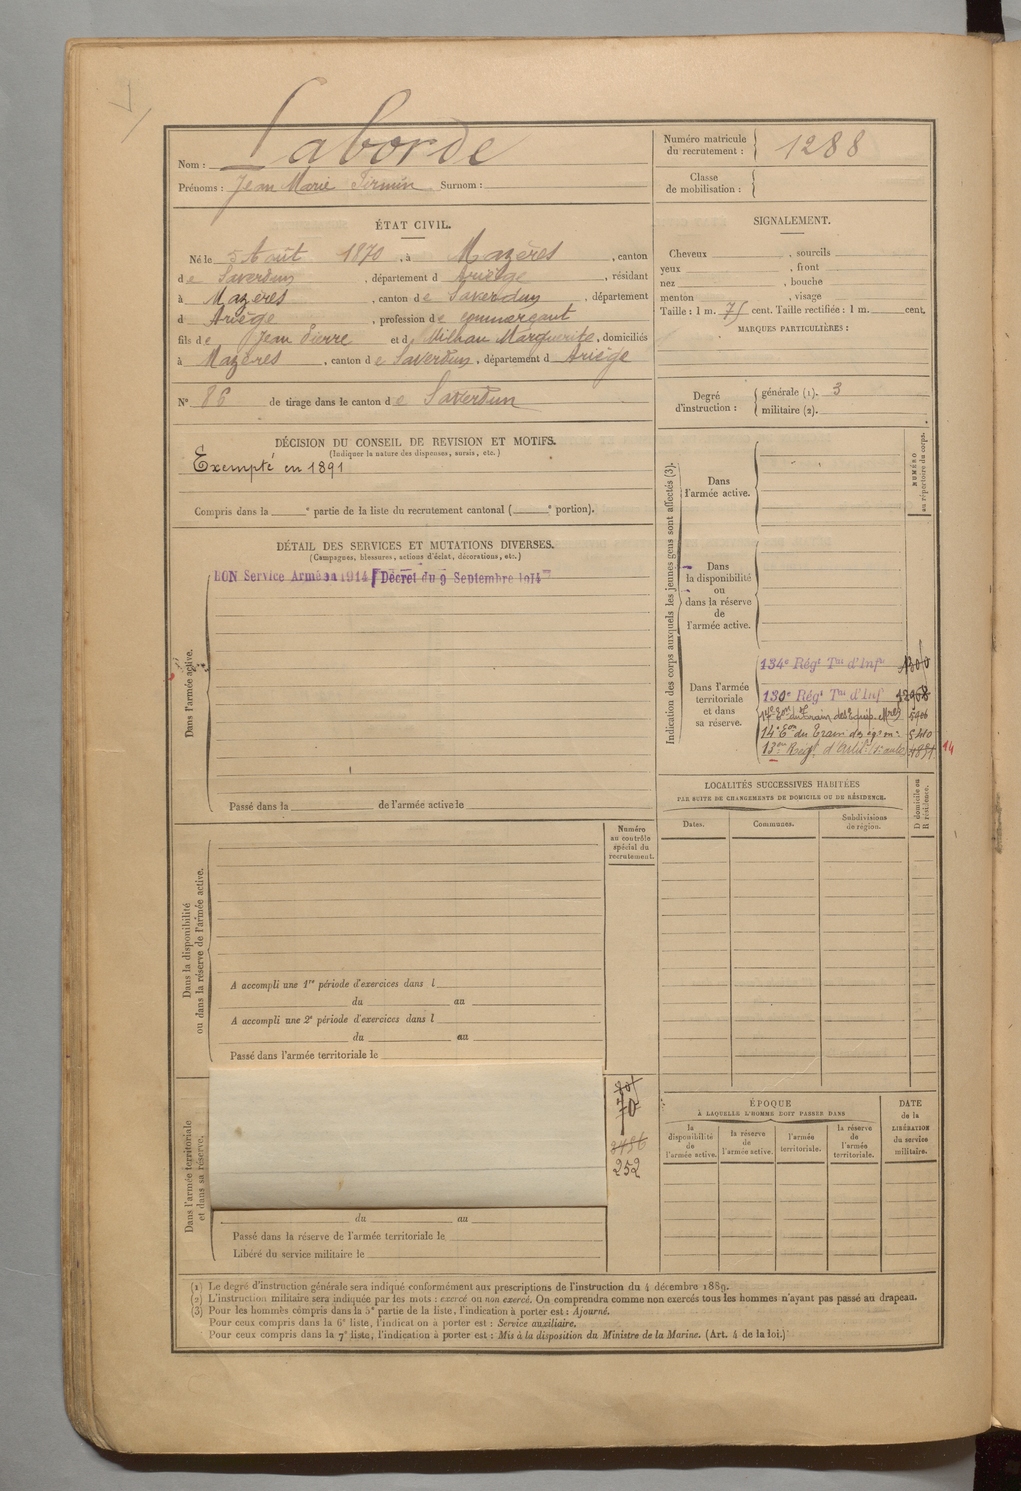 Nom : Laborde
Prénoms : Jean Marie Firmin Surnom :
Numéro matricule du recrutement : 1288
Classe de mobilisation :
ÉTAT CIVIL.
Né le 5 Août 1870, à Mazères, canton
de Saverdun, département d Ariège, résidant
à Mazères, canton de Saverdun, département
d Ariège, profession de commerçant
fils de Jean Pierre et d Milhau Marguerite, domiciliés
à Mazères, canton de Saverdun, département d Ariège
N° 86 de tirage dans le canton de Saverdun
SIGNALEMENT.
Cheveux , sourcils
yeux , front
nez , bouche
menton , visage
Taille : 1 m. 75 cent. Taille rectifiée : 1 m. cent.
MARQUES PARTICULIÈRES :
Degré d'instruction : générale (1). 3
militaire (2).
DÉCISION DU CONSEIL DE REVISION ET MOTIFS.
(Indiquer la nature des dispenses, sursis, etc.)
Exempté en 1891
Compris dans la e partie de la liste du recrutement cantonal ( e portion).
DÉTAIL DES SERVICES ET MUTATIONS DIVERSES.
(Campagnes, blessures, actions d'éclat, décorations, etc.)
BON Service Armé en 1914 Décret du 9 Septembre 1914
Dans l'armée active.
Passé dans la de l'armée active le
Numéro au contrôle spécial du recrutement.
Dans la disponibilité ou dans la réserve de l'armée active.
A accompli une 1re période d'exercices dans l
du au
A accompli une 2e période d'exercices dans l
du au
Passé dans l'armée territoriale le
Dans l'armée territoriale et dans sa réserve.
70
252
du au
Passé dans la réserve de l'armée territoriale le
Libéré du service militaire le
Indication des corps auxquels les jeunes gens sont affectés (3).
NUMÉRO au répertoire du corps.
Dans l'armée active.
Dans la disponibilité ou dans la réserve de l'armée active.
Dans l'armée territoriale et dans sa réserve.
134e Régt Tal d'Infie
130e Régt Tal d'Inf 12908
17e Eon du Train des Equip. Mres 5906
14e Eon du Train des 5410
13me Régt d'Artil. 4891
14
LOCALITÉS SUCCESSIVES HABITÉES
PAR SUITE DE CHANGEMENTS DE DOMICILE OU DE RÉSIDENCE.
Dates. Communes. Subdivisions de région. D domicile ou R résidence.
ÉPOQUE
À LAQUELLE L'HOMME DOIT PASSER DANS
la disponibilité de l'armée active. la réserve de l'armée active. l'armée territoriale. la réserve de l'armée territoriale.
DATE de la LIBÉRATION du service militaire.
(1) Le degré d'instruction générale sera indiqué conformément aux prescriptions de l'instruction du 4 décembre 1889.
(2) L'instruction militaire sera indiquée par les mots : exercé ou non exercé. On comprendra comme non exercés tous les hommes n'ayant pas passé au drapeau.
(3) Pour les hommes compris dans la 5e partie de la liste, l'indication à porter est : Ajourné.
Pour ceux compris dans la 6e liste, l'indication à porter est : Service auxiliaire.
Pour ceux compris dans la 7e liste, l'indication à porter est : Mis à la disposition du Ministre de la Marine. (Art. 4 de la loi.)